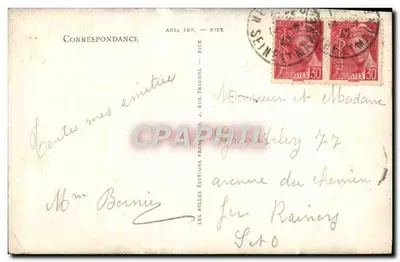 ADIA IMP. — NICE
CORRESPONDANCE
POSTES 30
POSTES 30
Toutes mes amitiés
Mme Bernié
LES BELLES ÉDITIONS FRANÇAISES, 2, RUE TRACHEL - NICE
CPARAMA
Monsieur et Madame
77
avenue du chemin
fer Raincy
S et O